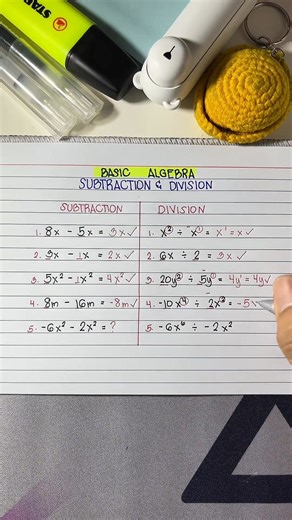 STAB
BASIC ALGEBRA
SUBTRACTION & DIVISION
SUBTRACTION
DIVISION
1. 8x - 5x = 3x ✓
2. 3x - 1x = 2x ✓
3. 5x² - 1x² = 4x² ✓
4. 8m - 16m = -8m ✓
5. -6x² - 2x² = ?
1. x² ÷ x¹ = x¹ = x ✓
2. 6x ÷ 2 = 3x ✓
3. 20y² ÷ 5y¹ = 4y¹ = 4y ✓
4. -10x⁴ ÷ 2x³ = -5x
5. -6x⁶ ÷ -2x²